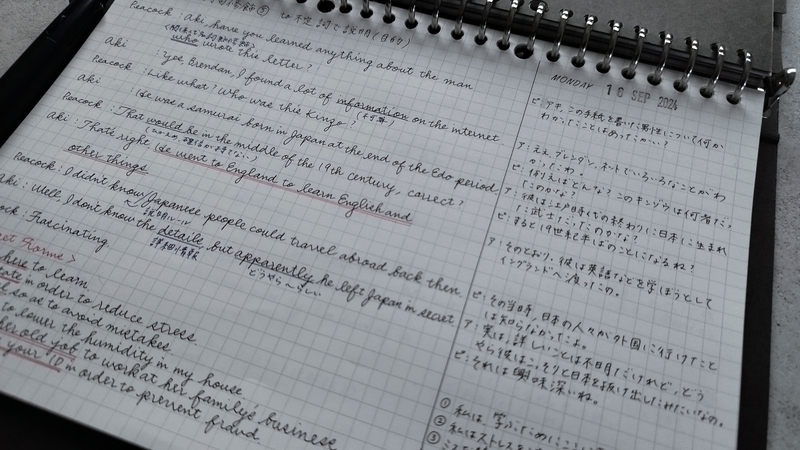 to 不定詞で説明(目的)
Peacock : Aki have you learned anything about the man
who wrote this letter?
Aki : Yes, Brendan, I found a lot of information on the internet
(不可算)
Peacock : Like what? Who was this Kingo?
Aki : He was a samurai born in Japan at the end of the Edo period
Peacock : That would be in the middle of the 19th century, correct?
Aki : That's right. He went to England to learn English and
other things
Peacock : I didn't know Japanese people could travel abroad back then.
Aki : Well, I don't know the details, but apparently he left Japan in secret
詳細情報
どうやら〜らしい
Peacock : Fascinating
here to learn
in order to reduce stress
so as to avoid mistakes
to lower the humidity in my house
old job to work at her family's business
your ID in order to prevent fraud
MONDAY 16 SEP 2024
ピ:アキ、この手紙を書いた男性について何か
わかったことはあったかい?
ア:ええ、ブレンダン、ネットでいろいろなことがわ
かったわ。
ピ:例えばどんな?このキンゴウは何者だっ
たのかな?
ア:彼は江戸時代の終わりに日本に生まれ
た武士だったの
ピ:すると19世紀半ばのことになるね?
ア:そのとおり、彼は英語などを学ぼうとして
イングランドへ渡ったの。
ピ:その当時、日本の人々が外国に行けたこと
は知らなかったよ。
ア:実は、詳しいことは不明だけれど、どう
やら彼はこっそりと日本を抜け出したみたいなの。
ピ:それは興味深いね。
① 私は、学ぶためにここに
② 私はストレスを
③ ミスを